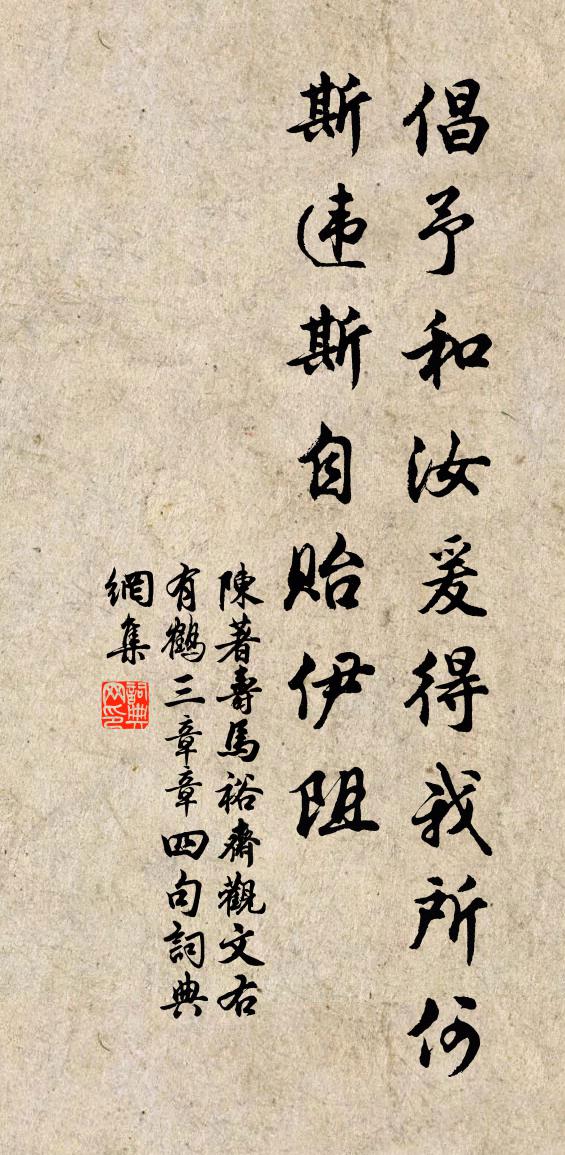 倡予和汝爰得我所何
斯违斯自贻伊阻
陳著壽馬裕齋觀文右
有鶴三章章四句詞典
網集
詞典网印